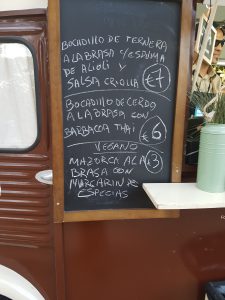 BOCADILLO DE TERNERA
A LA BRASA C/ESPUMA
DE ALIOLI Y
SALSA CRIOLLA €7
BOCADILLO DE CERDO
A LA BRASA CON
BARBACOA THAI €6
VEGANO
MAZORCA A LA €3
BRASA CON
MARGARIN DE
ESPECIAS